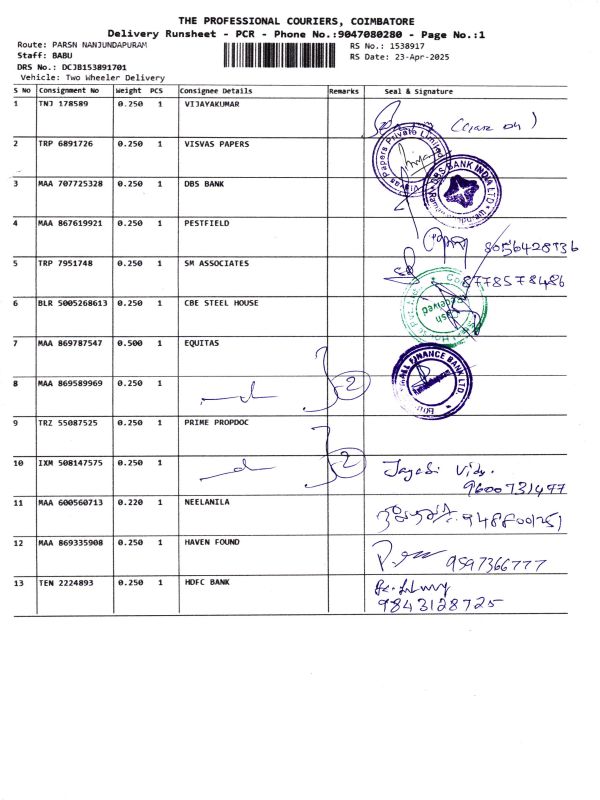 THE PROFESSIONAL COURIERS, COIMBATORE
Delivery Runsheet - PCR - Phone No.:9047080280 - Page No.:1
Route: PARSN NANJUNDAPURAM
RS No.: 1538917
Staff: BABU
RS Date: 23-Apr-2025
DRS No.: DCJB153891701
Vehicle: Two Wheeler Delivery
S No Consignment No Weight PCS Consignee Details Remarks Seal & Signature
1 TNJ 178589 0.250 1 VIJAYAKUMAR
2 TRP 6891726 0.250 1 VISVAS PAPERS
Visvas Papers Private Limited
3 MAA 707725328 0.250 1 DBS BANK
DBS BANK INDIA LTD
4 MAA 867619921 0.250 1 PESTFIELD
8056428736
5 TRP 7951748 0.250 1 SM ASSOCIATES
8778578486
6 BLR 5005268613 0.250 1 CBE STEEL HOUSE
Cash Received
7 MAA 869787547 0.500 1 EQUITAS
SMALL FINANCE BANK LTD.
8 MAA 869589969 0.250 1 2
9 TRZ 55087525 0.250 1 PRIME PROPDOC
10 IXM 508147575 0.250 1 2
9600731497
11 MAA 600560713 0.220 1 NEELANILA
9488001251
12 MAA 869335908 0.250 1 HAVEN FOUND
9597366777
13 TEN 2224893 0.250 1 HDFC BANK
9843128725